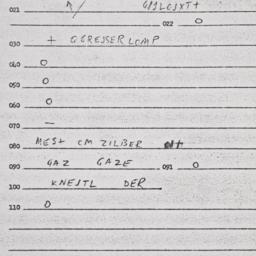 021
022 O
030 + GRESSER LOMP
040 O
050 O
060 O
070 —
080 MEST CM ZILBER
090 GAZ GAZE 091 O
100 KNESTL DER
110 O